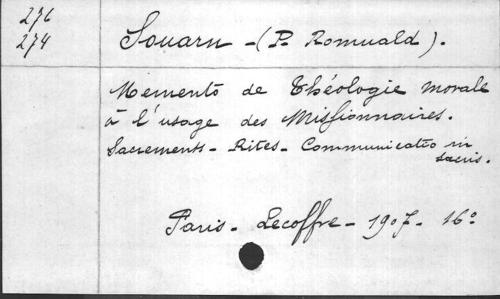 276
274
Souarn - (P. Romuald).
Memento de Théologie morale
à l'usage des Missionnaires.
Sacrements - Rites - Communicatio in
sacris.
Paris - Lecoffre - 1907 - 16º